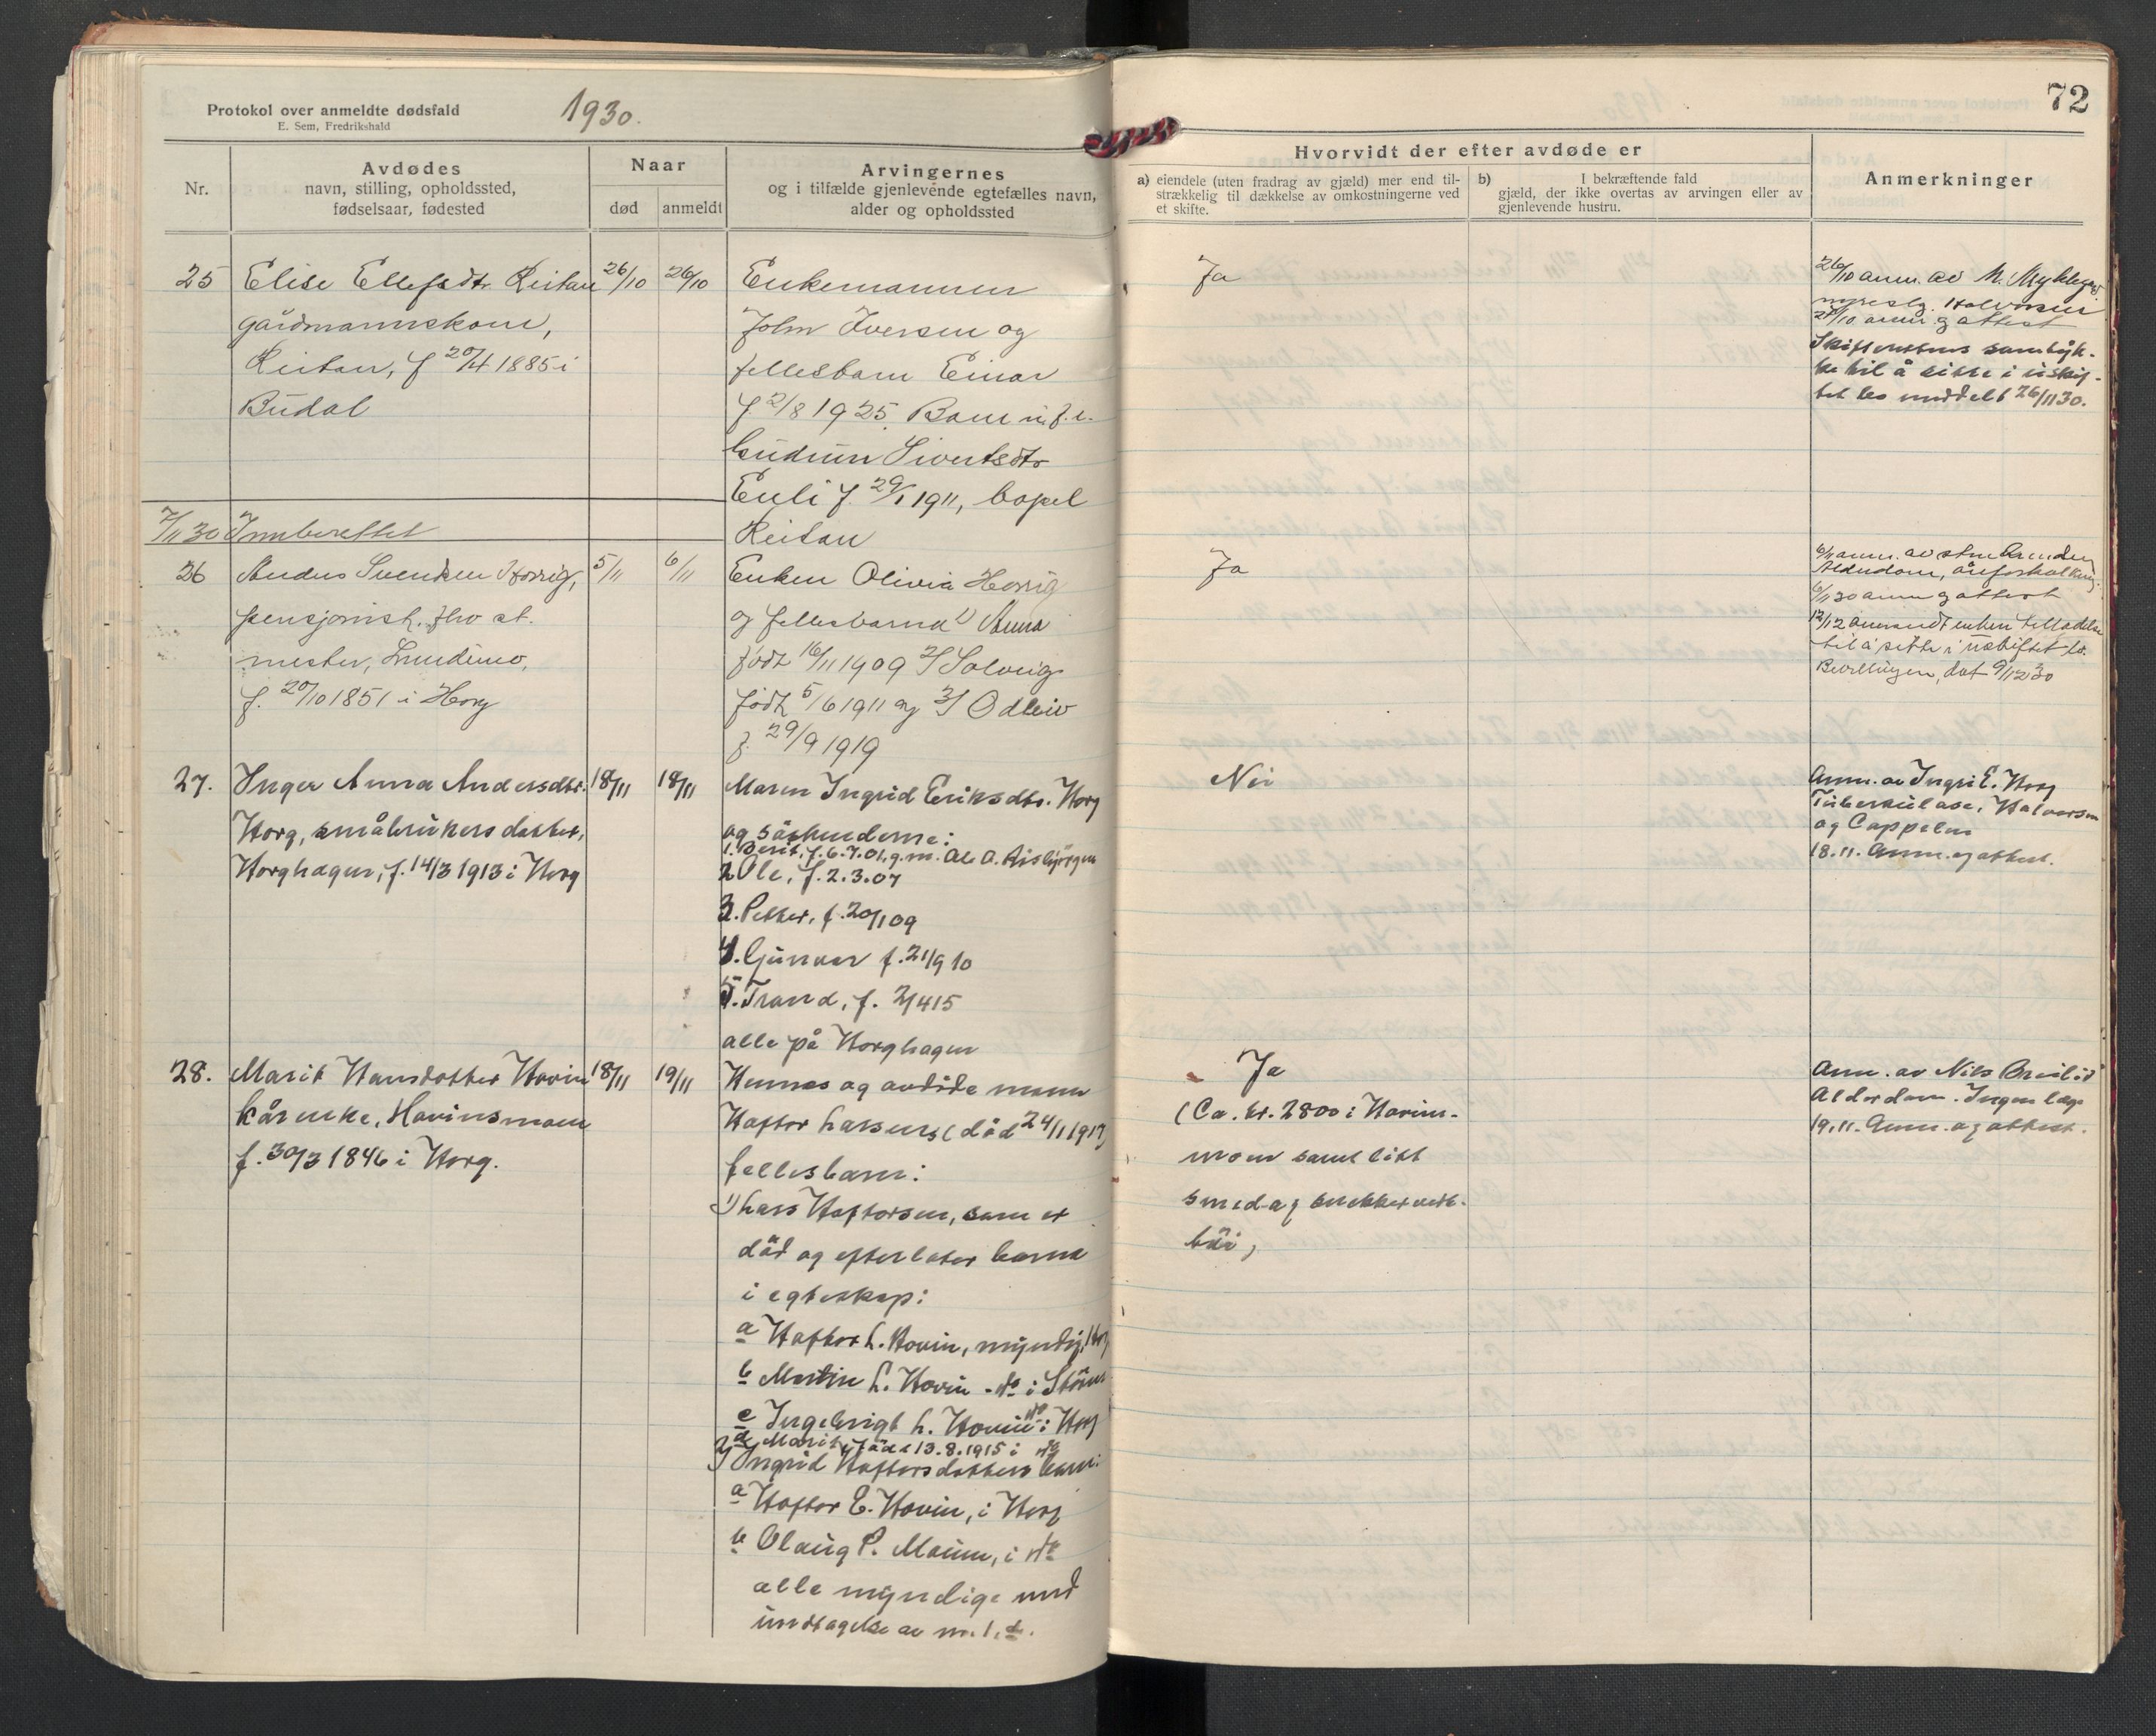 Protokol over anmeldte dødsfald
E. Sem, Fredrikshald
1930.
72
Nr.
Avdødes
navn, stilling, opholdssted,
fødselsaar, fødested
Naar
død
anmeldt
Arvingernes
og i tilfælde gjenlevende egtefælles navn,
alder og opholdssted
Hvorvidt der efter avdøde er
a) eiendele (uten fradrag av gjæld) mer end til-
strækkelig til dækkelse av omkostningerne ved
et skifte.
b) I bekræftende fald
gjæld, der ikke overtas av arvingen eller av
gjenlevende hustru.
Anmerkninger
25
Elise Ellefsdtr. Reitan
gårdmannskone,
Reitan, f 20/4 1885 i
Budal
26/10
26/10
Enkemannen
John Iversen og
fellesbarn Einar
f 2/8 1925. Barn u. f. e.
Gudrun Sivertsdtr
Enli f. 29/1 1911, bopel
Reitan
Ja
26/10 anm. av M. Myklegard
Halvorsen
28/10 anm. g attest
Skifterettens samtyk-
ke til å sitte i uskif-
tet bo meddelt 26/11 30.
7/11 30 Innberettet
26
Anders Svendsen Horrig,
pensjonist, fhv st.
mester, Lundemo,
f. 20/10 1851 i Horg
5/11
6/11
Enken Olivia Horrig
og fellesbarna 1) Anna
født 16/11 1909 2) Solveig
født 5/6 1911 og 3) Odleiv
f. 29/9 1919
Ja
6/11 anm. av
Alderdom, åreforkalkning
6/11 30 anm g attest
12/12 enken tilladelse
til å sitte i uskiftet bo.
Bevillingen, dat 9/12 30
27.
Inger Anna Andersdtr.
Horg, småbrukers datter,
Horghagen, f. 14/3 1913 i Horg
18/11
18/11
Maren Ingrid Eriksdtr. Horg
og søskenderne:
1. Berit, f. 6.7.01, g. m. Ole A.
2 Ole, f. 2.3.07
3. Petter, f. 20/1 09
4. Gunnar f. 21/9 10
5. Trond, f. 2/4 15
alle på Horghagen
Nei
Anm. av Ingri E. Horg
Tuberkulose, Halvorsen
og Cappelen
18.11. Anm. og attest.
28.
Marit Hansdatter Hovin
kårenke, Hovinsmoen
f. 30/3 1846 i Horg.
18/11
19/11
Hennes og avdøde mann
Haftor Larsens (død 24/1 1917)
fellesbarn:
1) Lars Haftorsen, som er
död og efterlater barna
i egteskap:
a Haftor L. Hovin, myndig, Horg
b Martin L. Hovin - do i Støren
c Ingebrigt L. Hovin do i Horg
d Marit, född 13.8.1915 i do
2) Ingrid Haftorsdatters barn:
a Haftor E. Hovin, i Horg
b Olaug P. Moum, i do
alle myndige med
undtagelse av nr. 1, d.
Ja
(Ca. kr. 2800 i Hovins-
moen samt litt
smed- og snekkerverk-
töi)
Anm. av Nils
Alderdom. Ingen læge
19.11. Anm. og attest.